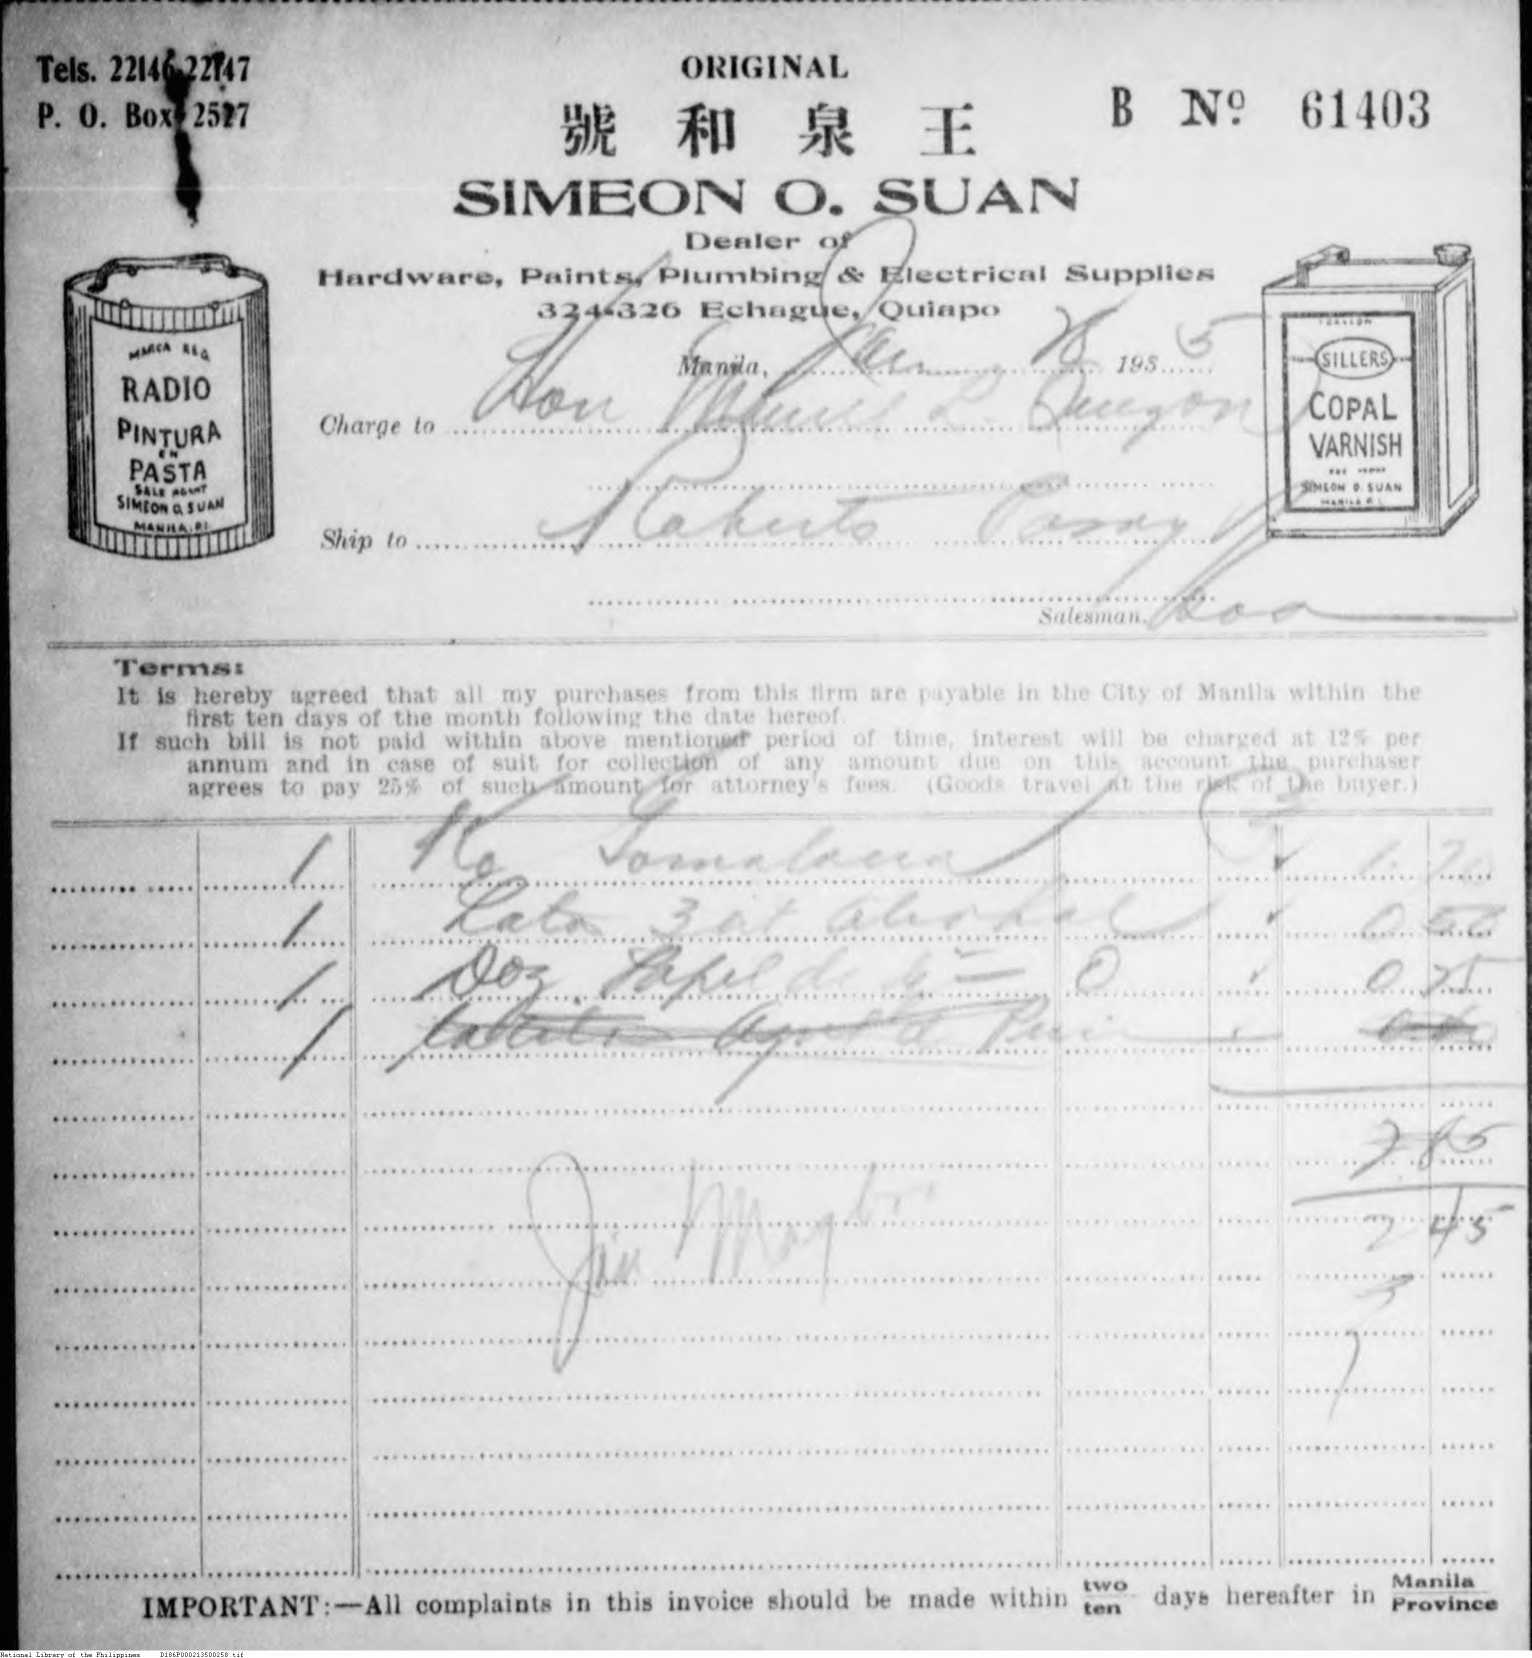 Tels. 22146-22147
P. O. Box 2527
ORIGINAL
B Nº 61403
號和泉王
SIMEON O. SUAN
Dealer of
Hardware, Paints, Plumbing & Electrical Supplies
324-326 Echague, Quiapo
Manila, 193 5
Charge to Hon Manuel L. Quezon
Ship to Roberts Pasay
Salesman
MARCA REG
RADIO
PINTURA
EN
PASTA
SALE AGENT
SIMEON O. SUAN
MANILA. P.I.
SILLERS
COPAL
VARNISH
SIMEON O. SUAN
MANILA P.I.
Terms:
It is hereby agreed that all my purchases from this firm are payable in the City of Manila within the
first ten days of the month following the date hereof.
If such bill is not paid within above mentioned period of time, interest will be charged at 12% per
annum and in case of suit for collection of any amount due on this account the purchaser
agrees to pay 25% of such amount for attorney's fees. (Goods travel at the risk of the buyer.)
1 Ko Gomalaca 1.70
1 Lata 3 at Alcohol 0 50
1 Doz. Papel de 0 0 25
1
2 85
2 45
IMPORTANT:—All complaints in this invoice should be made within two ten days hereafter in Manila Province
National Library of the Philippines D186P000213500258.tif